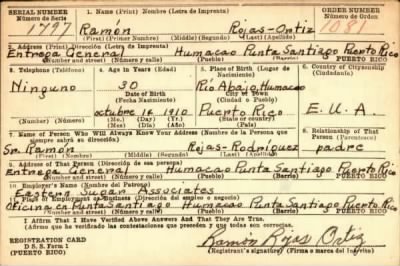 SERIAL NUMBER 1. Name (Print) Nombre (Letra de Imprenta) ORDER NUMBER
Número de Serie Número de Orden
1797 Ramón Rojas-Ortiz 1081
(First) (Primer Nombre) (Middle) (Segundo) (Last) (Apellido)
2. Address (Print) Dirección (Letra de Imprenta)
Entrega General Humacao Punta Santiago Puerto Rico
(Number) (Número) (Street) (Calle) (Town) (Pueblo) (Barrio) PUERTO RICO
3. Telephone (Teléfono) 4. Age in Years (Edad) 5. Place of Birth (Lugar de Nacimiento) 6. Country of Citizenship (Ciudadanía)
Ninguno 30 Rio Abajo, Humacao
Date of Birth City or Town
(Fecha Nacimiento) (Ciudad o Pueblo)
octubre 16 1910 Puerto Rico E.U.A.
(Number) (Número) (Mo.) (Mes) (Day) (Día) (Yr.) (Año) (State or country)
7. Name of Person Who Will Always Know Your Address (Nombre de la Persona que siempre sabrá su dirección) 8. Relationship of That Person (Parentesco)
Sr. Ramón Rojas-Rodríguez padre
(First) (Primer Nombre) (Middle) (Segundo) (Last) (Apellido)
9. Address of That Person (Dirección de esa persona)
Entrega General Humacao Punta Santiago Puerto Rico
(Number) (Número) (Street) (Calle) (Town) (Pueblo) (Barrio) PUERTO RICO
10. Employer's Name (Nombre del Patrono)
Eastern Sugar Associates
11. Place of Employment or Business (Dirección del empleo o negocio)
Oficina en Punta Santiago Humacao Punta Santiago Puerto Rico
(Number) (Número) (Street) (Calle) (Town) (Pueblo) (Barrio) PUERTO RICO
I Affirm That I Have Verified Above Answers And That They Are True.
Afirmo que he verificado las contestaciones que preceden y que todas son correctas.
REGISTRATION CARD
D. S. S. Form 1
(PUERTO RICO)
Ramón Rojas Ortiz
(Registrant's signature) (Firma o marca del Registrado)